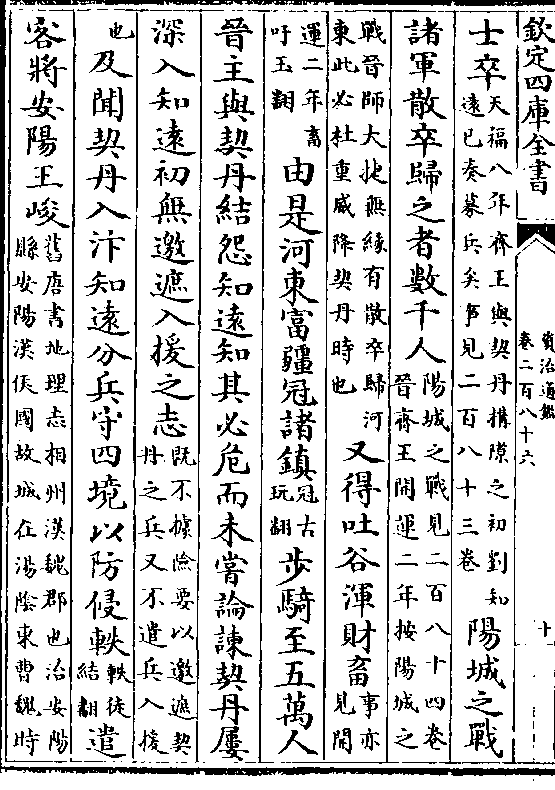 欽定四庫全書
資治通鑑
卷二百八十六
十
士卒天福八年齊王與契丹搆隙之初劉知
遠已奏募兵矣事見二百八十三卷陽城之戰
諸軍散卒歸之者數千人陽城之戰見二百八十四卷
晉齊王開運二年按陽城之
戰晉師大捷無緣有散卒歸河
東此必杜重威降契丹時也又得吐谷渾財畜事亦
見開
運二年畜
吁玉翻由是河東富彊冠諸鎮冠古
玩翻步騎至五萬人
晉主與契丹結怨知遠知其必危而未嘗論諫契丹屢
深入知遠初無邀遮入援之志既不據險要以邀遮契
丹之兵又不遣兵入援
也及聞契丹入汴知遠分兵守四境以防侵軼軼徒
結翻遣
客將安陽王峻舊唐書地理志相州漢魏郡也治安陽
縣安陽漢侯國故城在湯陰東曹魏時